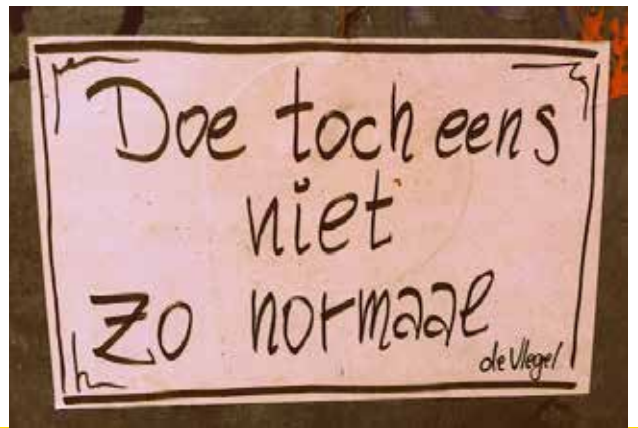 Doe toch eens
niet
zo normaal
de Vlegel